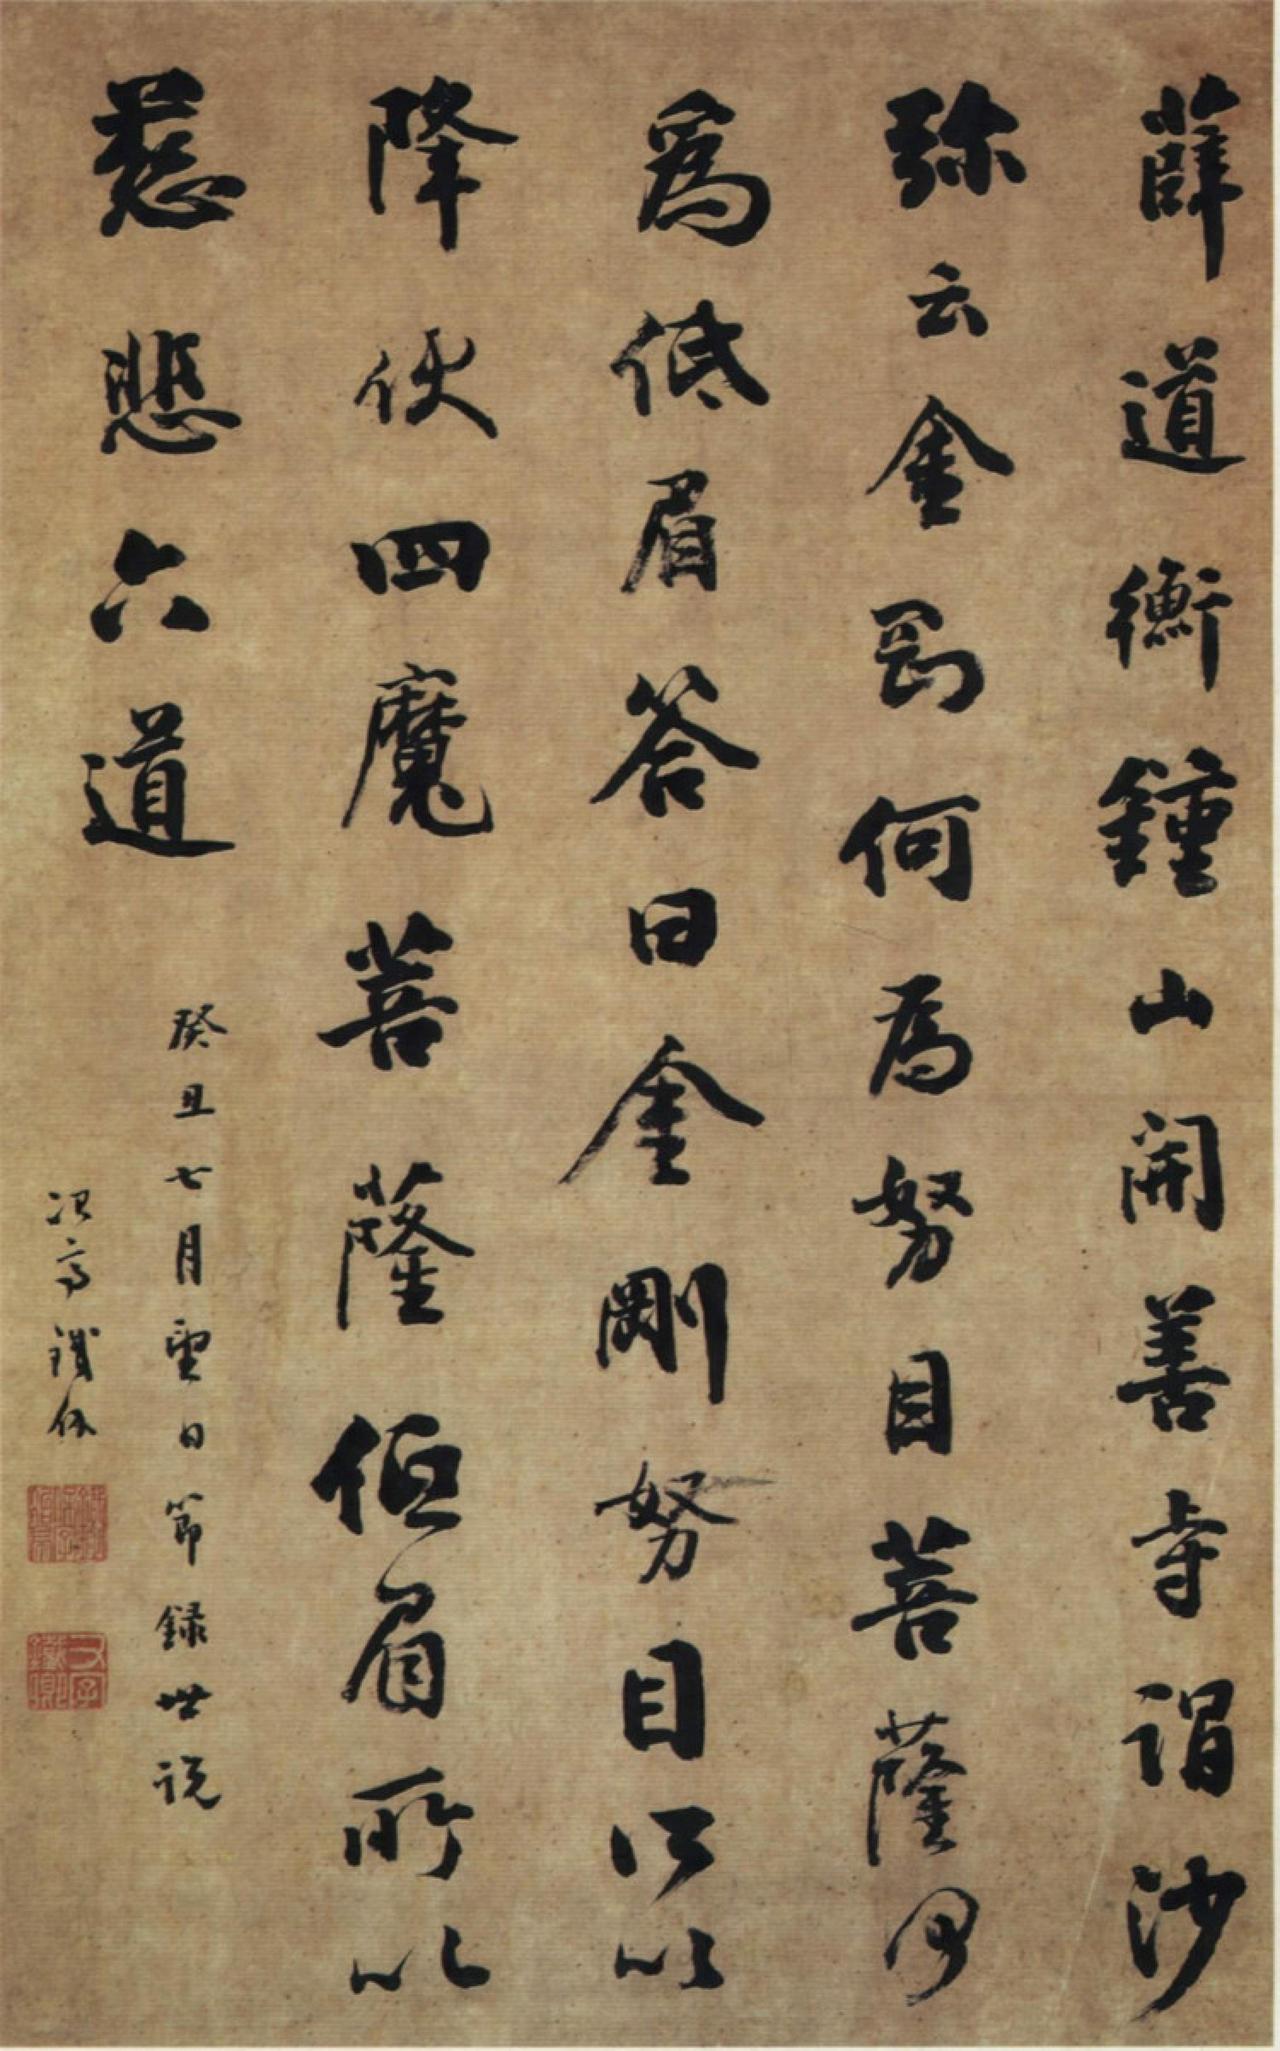 薛道衡鍾山開善寺謂沙
弥云金剛何為努目菩薩何
為低眉答曰金剛努目所以
降伏四魔菩薩低眉所以
慈悲六道
癸丑七月望日節録世説
冶亭鐵保
又字鐵卿